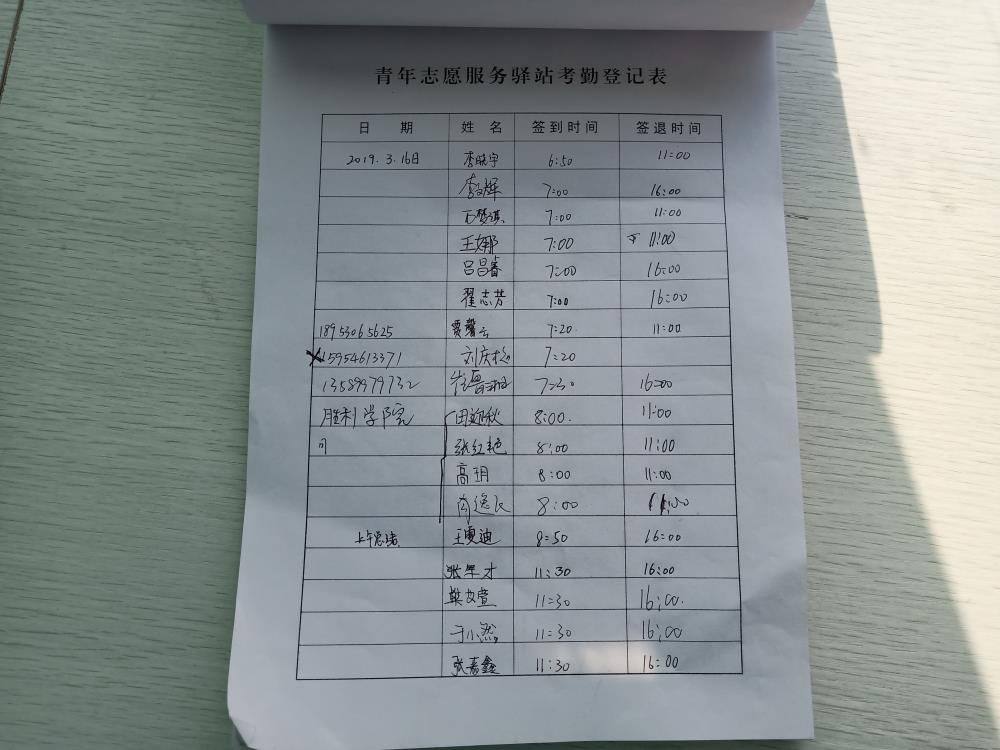 青年志愿服务驿站考勤登记表
日 期 姓 名 签到时间 签退时间
2019.3.16日 李晓宇 6:50 11:00
7:00 16:00
石梦琪 7:00 11:00
王娜 7:00 11:00
吕昌睿 7:00 16:00
翟志芳 7:00 16:00
18953065625 贾馨云 7:20. 11:00
15954613371 刘庆松 7:20
13589979732 7:30 16:00
胜利学院 8:00. 11:00
张红艳 8:00 11:00
高玥 8:00 11:00
肖逸飞 8:00 11:00
王雯迪 8:50 16:00
张军才 11:30 16:00
11:30 16:00.
于小然 11:30 16:00
张嘉鑫 11:30 16:00